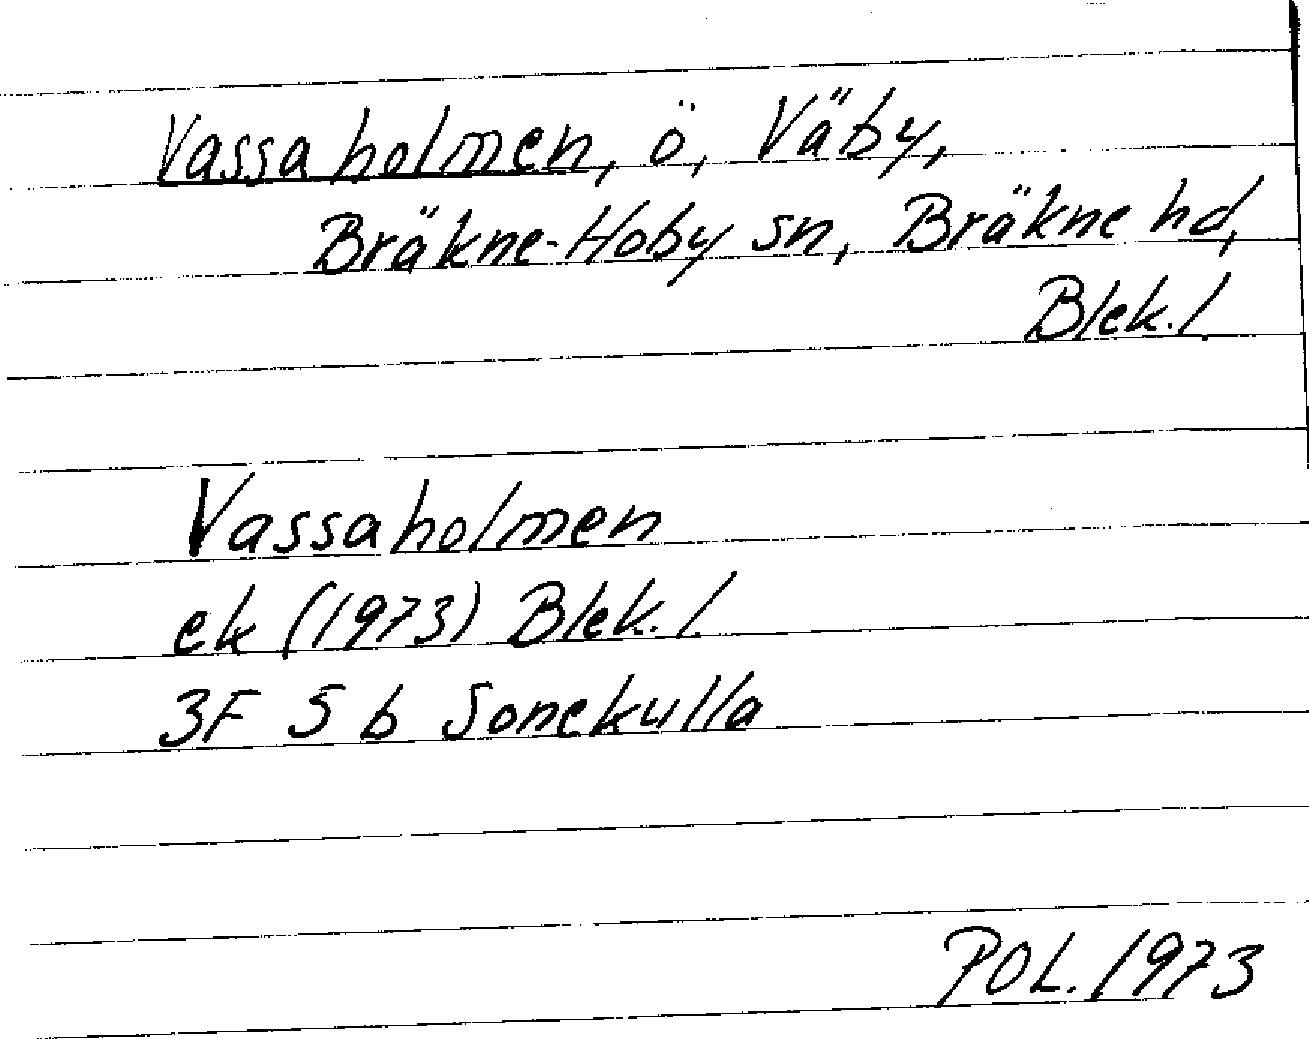 Vassaholmen, ö, Väby,
Bräkne-Hoby sn, Bräkne hd,
Blek. l.
Vassaholmen
ek (1973) Blek. l.
3F 5 b Sonekulla
POL. 1973